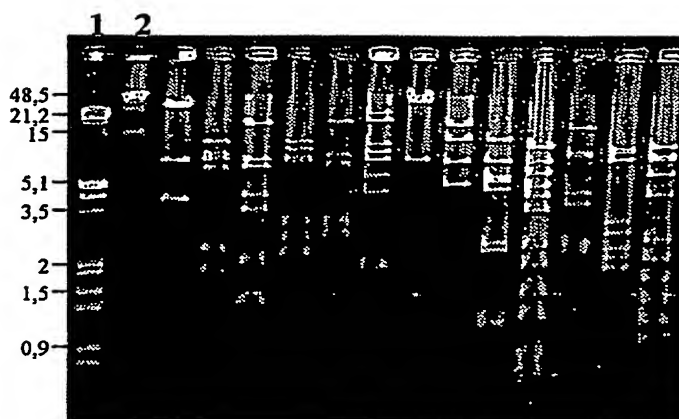 1 2
48,5
21,2
15
5,1
3,5
2
1,5
0,9